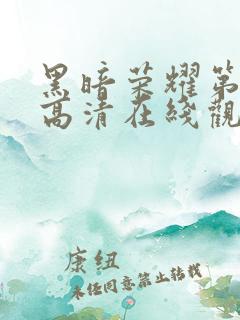 黑暗荣耀第
高清在线觀
康纽
未经同意禁止转载